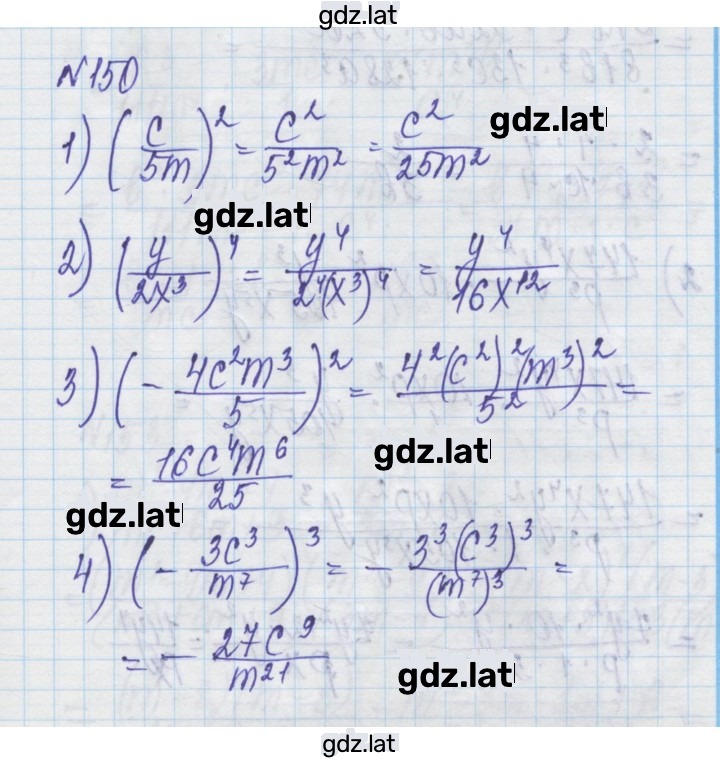 gdz.lat
№150
1) (c/5m)² = c²/5²m² = c²/25m²
gdz.lat
gdz.lat
2) (y/2x³)⁴ = y⁴/2⁴(x³)⁴ = y⁴/16x¹²
3) (- 4c²m³/5)² = 4²(c²)²(m³)²/5² =
= 16c⁴m⁶/25
gdz.lat
gdz.lat
4) (- 3c³/m⁷)³ = - 3³(c³)³/(m⁷)³ =
= - 27c⁹/m²¹
gdz.lat
gdz.lat